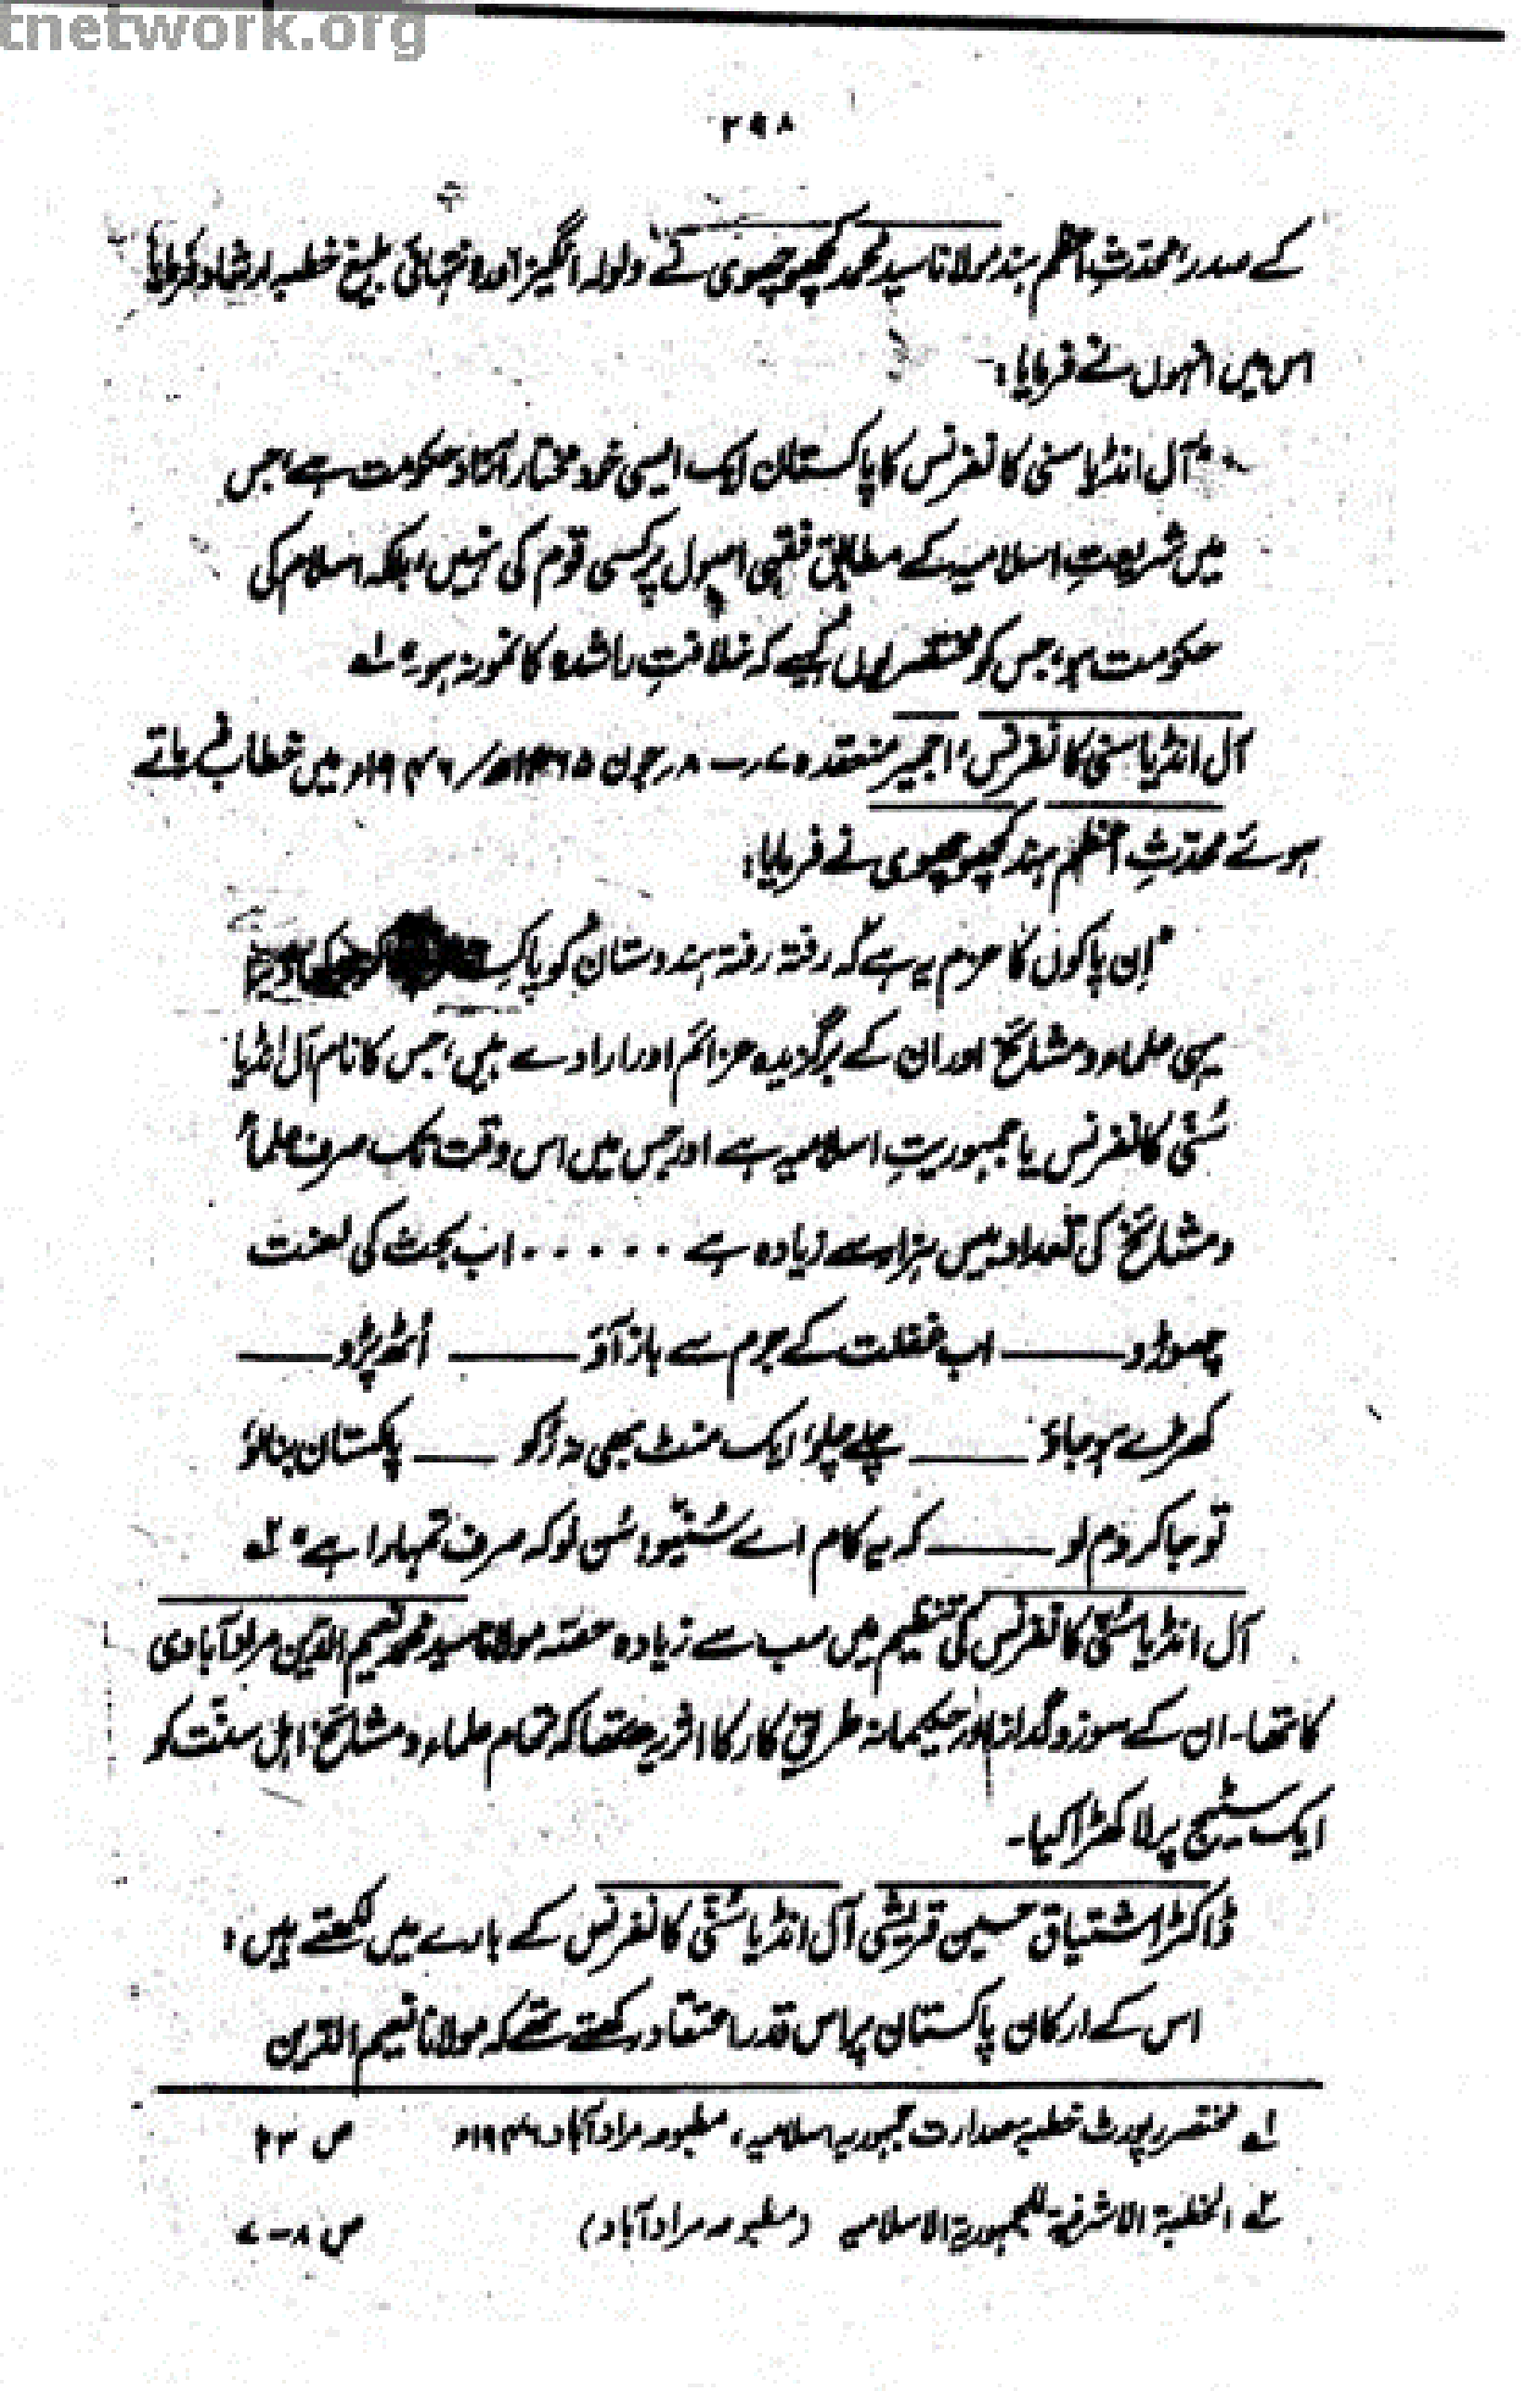 tnetwork.org
۲۹۸
کے صدر محدّثِ اعظم ہند مولانا سید محمد کچھوچھوی نے ولولہ انگیز اور انتہائی بلیغ خطبہ ارشاد فرمایا
اس میں انہوں نے فرمایا:-
"آل انڈیا سنی کانفرنس کا پاکستان ایک ایسی خود مختار آزاد حکومت ہے، جس
میں شریعتِ اسلامیہ کے مطابق فقہی اصول پر کسی قوم کی نہیں، بلکہ اسلام کی
حکومت ہو، جس کو مختصر یوں کہیے کہ خلافتِ راشدہ کا نمونہ ہو" لے
آل انڈیا سنی کانفرنس، اجمیر منعقدہ ۷ر - ۸ر جون ۱۳۶۵ھ / ۱۹۴۶ء میں خطاب فرماتے
ہوئے محدّثِ اعظم ہند کچھوچھوی نے فرمایا:
"اِن پاکوں کا عزم یہ ہے کہ رفتہ رفتہ ہندوستان کو پاکستان
یہی علماء و مشائخ اور ان کے برگزیدہ عزائم اور ارادے ہیں، جس کا نام آل انڈیا
سُنّی کانفرنس یا جمہوریتِ اسلامیہ ہے اور جس میں اس وقت تک صرف علماء
و مشائخ کی تعداد بیس ہزار سے زیادہ ہے ۔۔۔۔۔۔ اب بحث کی لعنت
چھوڑو ــــــ اب غفلت کے جرم سے باز آؤ ــــــ اُٹھ پڑو ــــــ
کھڑے ہو جاؤ ــــــ چلے چلو، ایک منٹ بھی نہ رُکو ــــــ پاکستان بنا لو
تو جا کر دم لو ــــــ کہ یہ کام اے سُنّیو! سُن لو کہ صرف تمہارا ہے" ۲ے
آل انڈیا سُنّی کانفرنس کی تنظیم میں سب سے زیادہ حصّہ مولانا سید محمد نعیم الدین مراد آبادی
کا تھا۔ ان کے سوز و گداز اور حکیمانہ طریقِ کار کا اثر یہ تھا کہ تمام علماء و مشائخ اہل سنّت کو
ایک سٹیج پر لا کھڑا کیا۔
ڈاکٹر اشتیاق حسین قریشی آل انڈیا سُنّی کانفرنس کے بارے میں لکھتے ہیں:
اس کے ارکان پاکستان پر اس قدر اعتقاد رکھتے تھے کہ مولانا نعیم الدین
لے مختصر رپورٹ خطبہ صدارت جمہوریہ اسلامیہ، مطبوعہ مراد آباد ۱۹۴۶ء ص
۲ے الخطبۃ الاشرفیۃ للجمہوریۃ الاسلامیہ (مطبوعہ مراد آباد) ص ۸-۷